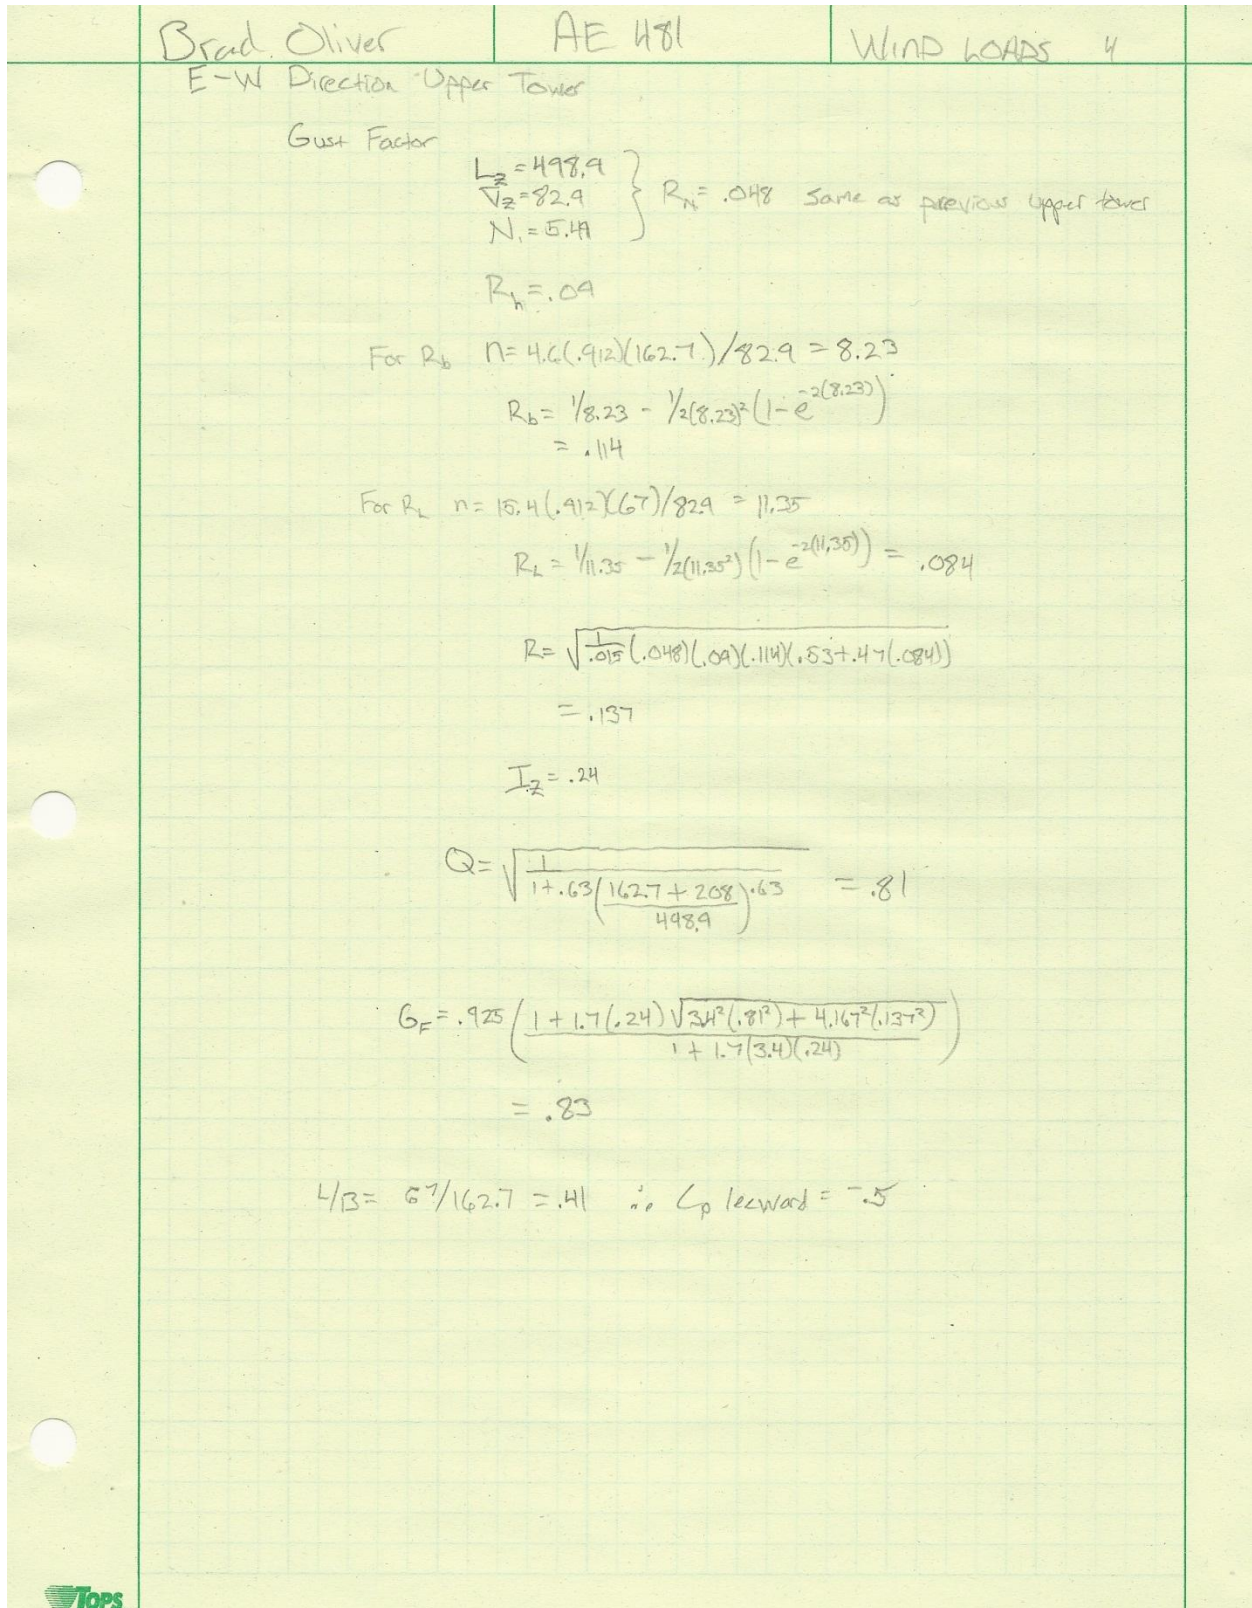 Brad Oliver AE 481 WIND LOADS 4
E-W Direction Upper Tower
Gust Factor
L_z̄ = 498.9
V̄_z̄ = 82.9
N₁ = 5.49
} R_N = .048 Same as previous upper tower
R_h = .09
For R_b n = 4.6(.912)(162.7)/82.9 = 8.23
R_b = 1/8.23 - 1/2(8.23)² (1-e^-2(8.23))
= .114
For R_L n = 15.4(.912)(67)/82.9 = 11.35
R_L = 1/11.35 - 1/2(11.35²) (1-e^-2(11.35)) = .084
R = √(1/.015 (.048)(.09)(.114)(.53+.47(.084)))
= .137
I_z̄ = .24
Q = √(1/(1+.63((162.7+208)/498.9)^.63)) = .81
G_F = .925 ((1+1.7(.24)√(3.4²(.81²)+4.167²(.137²)))/(1+1.7(3.4)(.24)))
= .83
L/B = 67/162.7 = .41 ∴ Cp leeward = -.5
TOPS